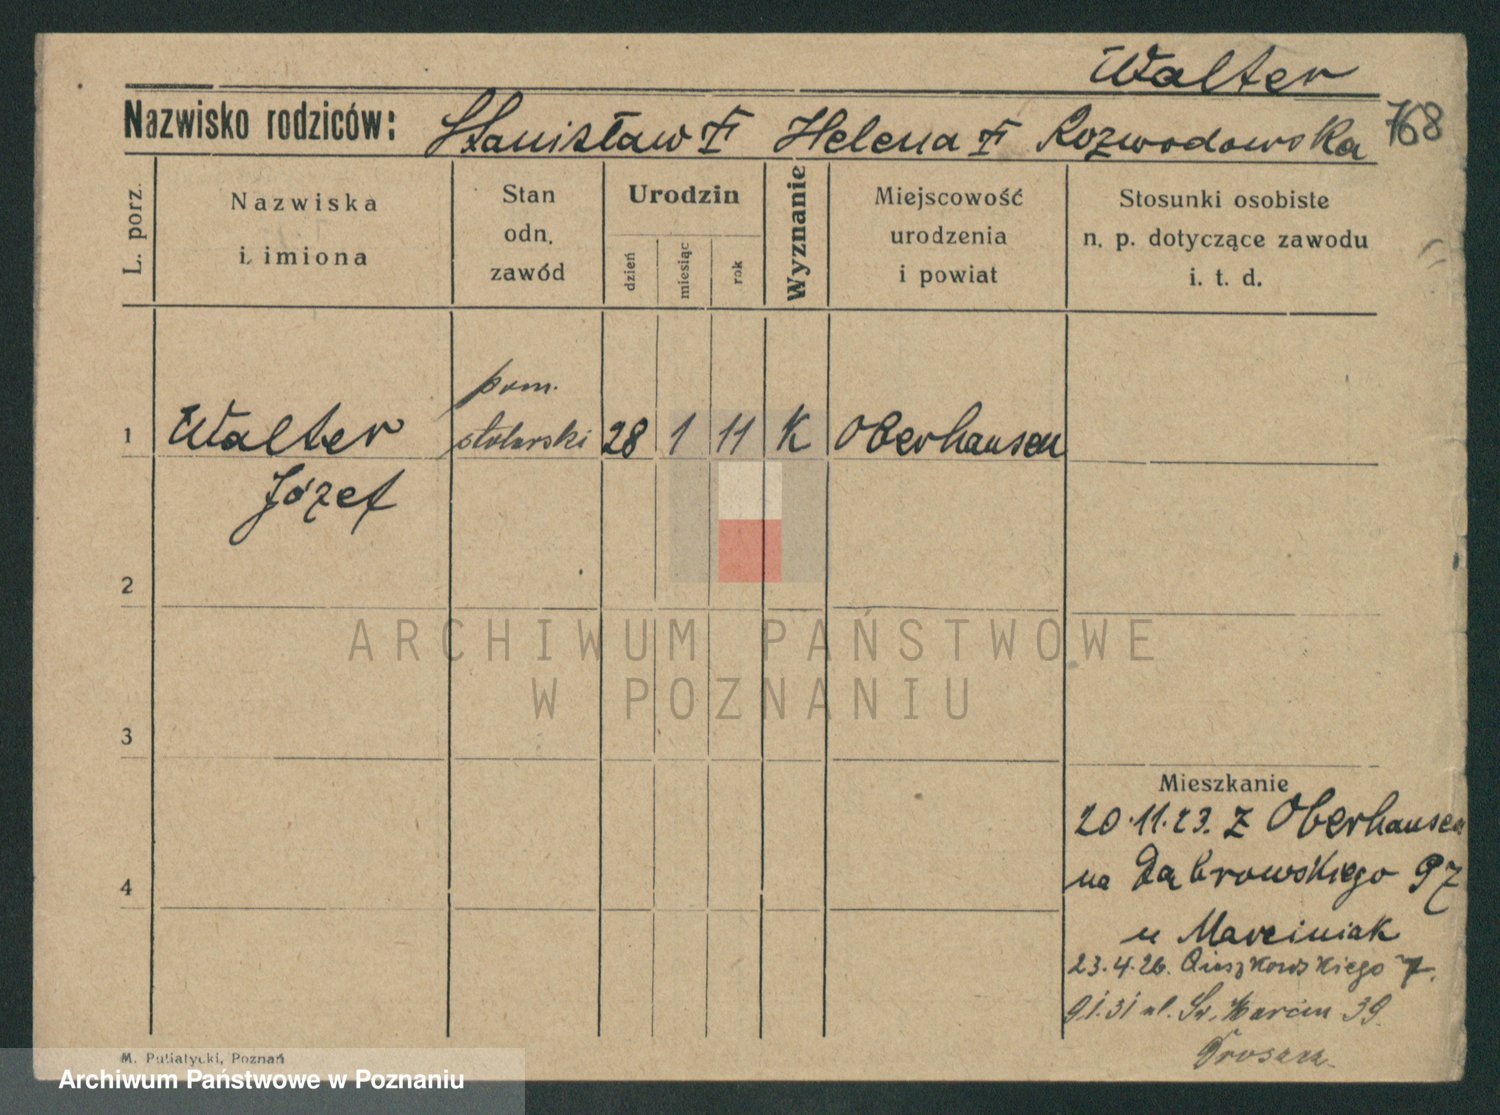 Walter
Nazwisko rodziców: Stanisław F Helena F Rozwodowska 768
L. porz.
Nazwiska
i imiona
Stan
odn.
zawód
Urodzin
dzień
miesiąc
rok
Wyznanie
Miejscowość
urodzenia
i powiat
Stosunki osobiste
n. p. dotyczące zawodu
i. t. d.
pom.
1 Walter stolarski 28 1 11 K Oberhausen
Józef
2
ARCHIWUM PAŃSTWOWE
W POZNANIU
3
Mieszkanie
20.11.23. z Oberhausen
na Dąbrowskiego 97
4
u Marciniak
23.4.26. 7.
9.1.31 ul. Św. Marcin 39
M. Putiatycki, Poznań
Archiwum Państwowe w Poznaniu